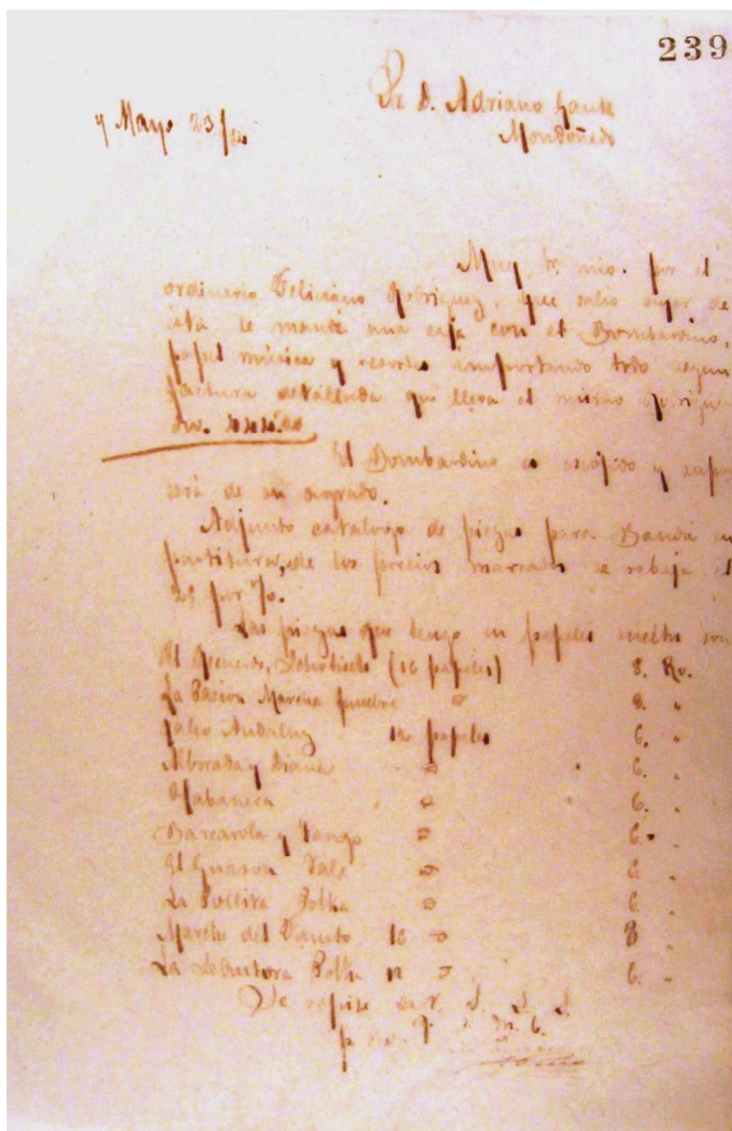 239
Sr D. Adriano
Mayo 23
Mondoñedo
Muy Sr. mio. por el
ordinario Feliciano Rodriguez, que salio ayer de
esta le mandé una caja con el Bombardino,
papel música y resortes importando todo segun
factura detallada que lleva el mismo Rodriguez
El Bombardino es escojido y
será de su agrado.
Adjunto catalogo de piezas para Banda en
partitura, de los precios marcados se rebaja el
25 por %.
Las piezas que tengo en papeles sueltos son
El Schotisch (16 papeles) 8. Rv.
La Marcha funebre 8. "
Jaleo Andaluz 12 papeles 6. "
Alborada y Diana 6. "
Habanera 6. "
Barcarola y Tango 6. "
El Guason Vals 6 "
La Pollita Polka 6 "
Marcha del 16 8 "
La Polka 12 6. "
Se repite de V. S. S. S.